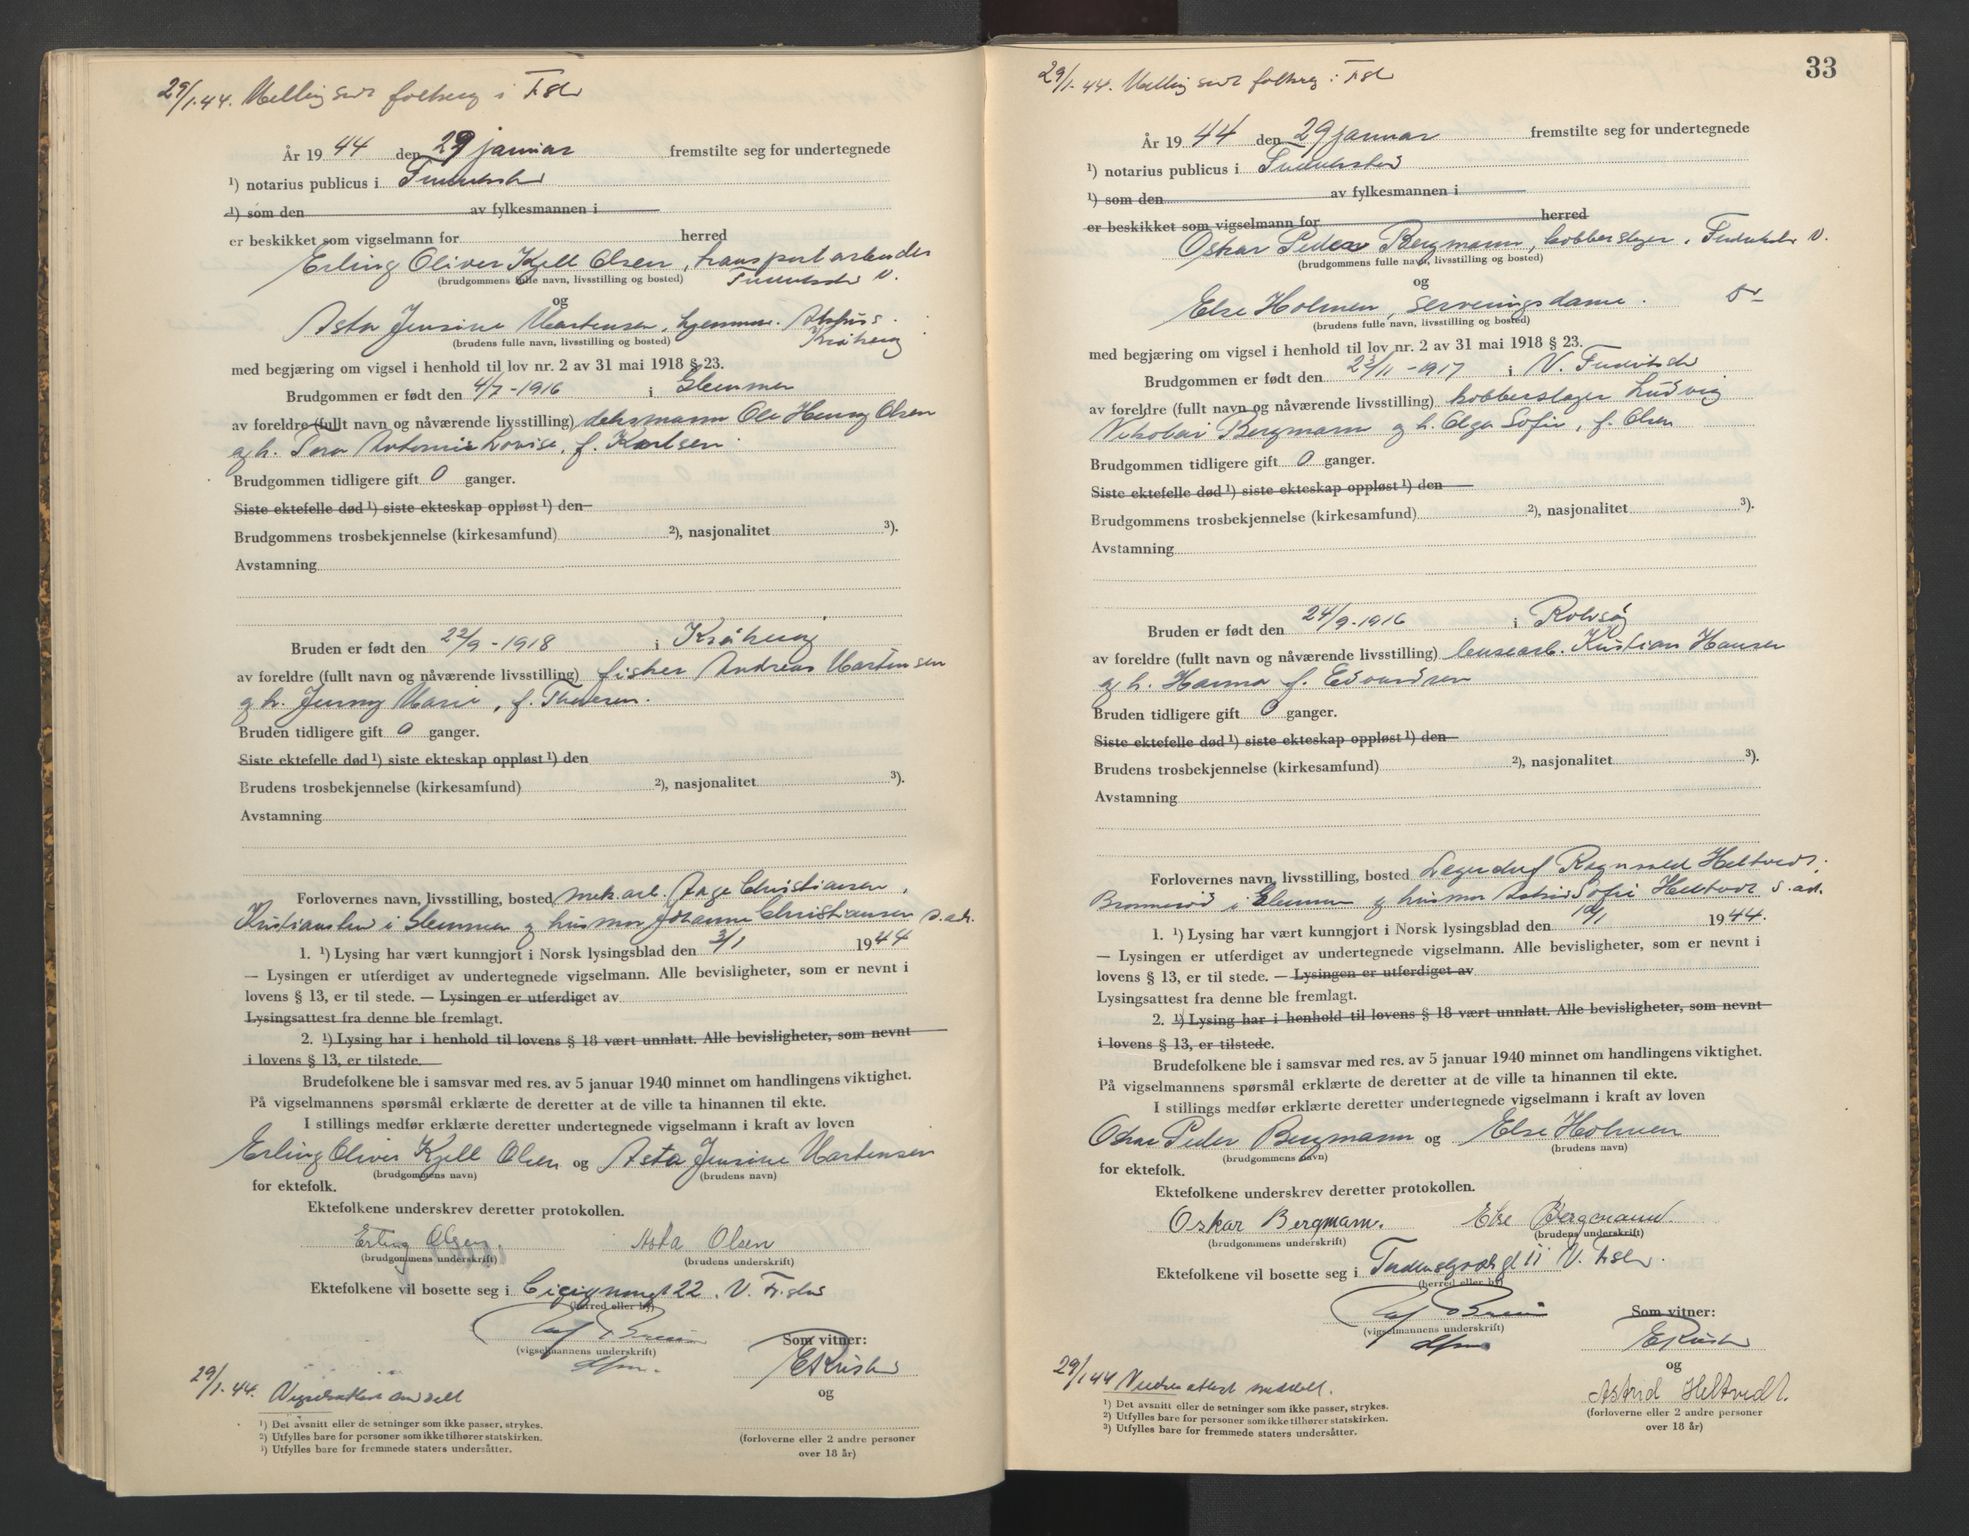 29/1.44. Melding sendt folkereg i F.stad
År 19 44 den 29 januar fremstilte seg for undertegnede
¹) notarius publicus i Fredrikstad
¹) som den av fylkesmannen i
er beskikket som vigselmann for herred
Erling Oliver Kjell Olsen, transportarbeider
(brudgommens fulle navn, livsstilling og bosted) Fredrikstad V.
og
Asta Jensine Martensen, hjemmev. Alshus
(brudens fulle navn, livsstilling og bosted) Kråkerøy
med begjæring om vigsel i henhold til lov nr. 2 av 31 mai 1918 § 23.
Brudgommen er født den 4/7-1916 i Glemmen
av foreldre (fullt navn og nåværende livsstilling) deksmann Ole Henry Olsen
og h. Tora Antonie Lovise, f. Karlsen.
Brudgommen tidligere gift 0 ganger.
Siste ektefelle død ¹) siste ekteskap oppløst ¹) den
Brudgommens trosbekjennelse (kirkesamfund) ²), nasjonalitet ³).
Avstamning
Bruden er født den 22/9-1918 i Kråkerøy
av foreldre (fullt navn og nåværende livsstilling) fisker Andreas Martensen
og h. Jenny Marie, f. Thoresen.
Bruden tidligere gift 0 ganger.
Siste ektefelle død ¹) siste ekteskap oppløst ¹) den
Brudens trosbekjennelse (kirkesamfund) ²), nasjonalitet ³).
Avstamning
Forlovernes navn, livsstilling, bosted mek.arb. Aage Christiansen,
Kristiansten i Glemmen og husmor Johanne Christiansen s.adr.
1. ¹) Lysing har vært kunngjort i Norsk lysingsblad den 3/1 1944
— Lysingen er utferdiget av undertegnede vigselmann. Alle bevisligheter, som er nevnt i
lovens § 13, er til stede. — Lysingen er utferdiget av
Lysingsattest fra denne ble fremlagt.
2. ¹) Lysing har i henhold til lovens § 18 vært unnlatt. Alle bevisligheter, som nevnt
i lovens § 13, er tilstede.
Brudefolkene ble i samsvar med res. av 5 januar 1940 minnet om handlingens viktighet.
På vigselmannens spørsmål erklærte de deretter at de ville ta hinannen til ekte.
I stillings medfør erklærte deretter undertegnede vigselmann i kraft av loven
Erling Oliver Kjell Olsen og Asta Jensine Martensen
(brudgommens navn) (brudens navn)
for ektefolk.
Ektefolkene underskrev deretter protokollen.
Erling Olsen. Asta Olsen
(brudgommens underskrift) (brudens underskrift)
Ektefolkene vil bosette seg i 22. V. Fr.stad
(herred eller by)
Som vitner:
(vigselmannens underskrift)
29/1.44. Vigselsattest avsendt
og
¹) Det avsnitt eller de setninger som ikke passer, strykes.
²) Utfylles bare for personer som ikke tilhører statskirken.
³) Utfylles bare for fremmede staters undersåtter.
(forloverne eller 2 andre personer
over 18 år)
33
29/1.44. Melding sendt folkereg i F.stad
År 19 44 den 29 januar fremstilte seg for undertegnede
¹) notarius publicus i Fredrikstad
¹) som den av fylkesmannen i
er beskikket som vigselmann for herred
Oskar Peder Bergmann, kobberslager, Fredrikstad V.
(brudgommens fulle navn, livsstilling og bosted)
og
Else Holmen, serveringsdame.
(brudens fulle navn, livsstilling og bosted)
med begjæring om vigsel i henhold til lov nr. 2 av 31 mai 1918 § 23.
Brudgommen er født den 23/11-1917 i V. Fredrikstad
av foreldre (fullt navn og nåværende livsstilling) kobberslager Ludvig
Nikolai Bergmann og h. Olga Sofie, f. Olsen
Brudgommen tidligere gift 0 ganger.
Siste ektefelle død ¹) siste ekteskap oppløst ¹) den
Brudgommens trosbekjennelse (kirkesamfund) ²), nasjonalitet ³).
Avstamning
Bruden er født den 24/9-1916 i Rolvsøy
av foreldre (fullt navn og nåværende livsstilling) Kristian Hansen
og h. Hanna f. Edvardsen
Bruden tidligere gift 0 ganger.
Siste ektefelle død ¹) siste ekteskap oppløst ¹) den
Brudens trosbekjennelse (kirkesamfund) ²), nasjonalitet ³).
Avstamning
Forlovernes navn, livsstilling, bosted Ragnvald Heltvedt,
i Glemmen og husmor Astrid Sofie Heltvedt s.adr.
1. ¹) Lysing har vært kunngjort i Norsk lysingsblad den 10/1 1944.
— Lysingen er utferdiget av undertegnede vigselmann. Alle bevisligheter, som er nevnt i
lovens § 13, er til stede. — Lysingen er utferdiget av
Lysingsattest fra denne ble fremlagt.
2. ¹) Lysing har i henhold til lovens § 18 vært unnlatt. Alle bevisligheter, som nevnt
i lovens § 13, er tilstede.
Brudefolkene ble i samsvar med res. av 5 januar 1940 minnet om handlingens viktighet.
På vigselmannens spørsmål erklærte de deretter at de ville ta hinannen til ekte.
I stillings medfør erklærte deretter undertegnede vigselmann i kraft av loven
Oskar Peder Bergmann og Else Holmen
(brudgommens navn) (brudens navn)
for ektefolk.
Ektefolkene underskrev deretter protokollen.
Oskar Bergmann. Else Bergmann.
(brudgommens underskrift) (brudens underskrift)
Ektefolkene vil bosette seg i 11 V. Fr.stad.
(herred eller by)
Som vitner:
(vigselmannens underskrift)
og
29/1 44 attest meddelt.
Astrid Heltvedt.
¹) Det avsnitt eller de setninger som ikke passer, strykes.
²) Utfylles bare for personer som ikke tilhører statskirken.
³) Utfylles bare for fremmede staters undersåtter.
(forloverne eller 2 andre personer
over 18 år)